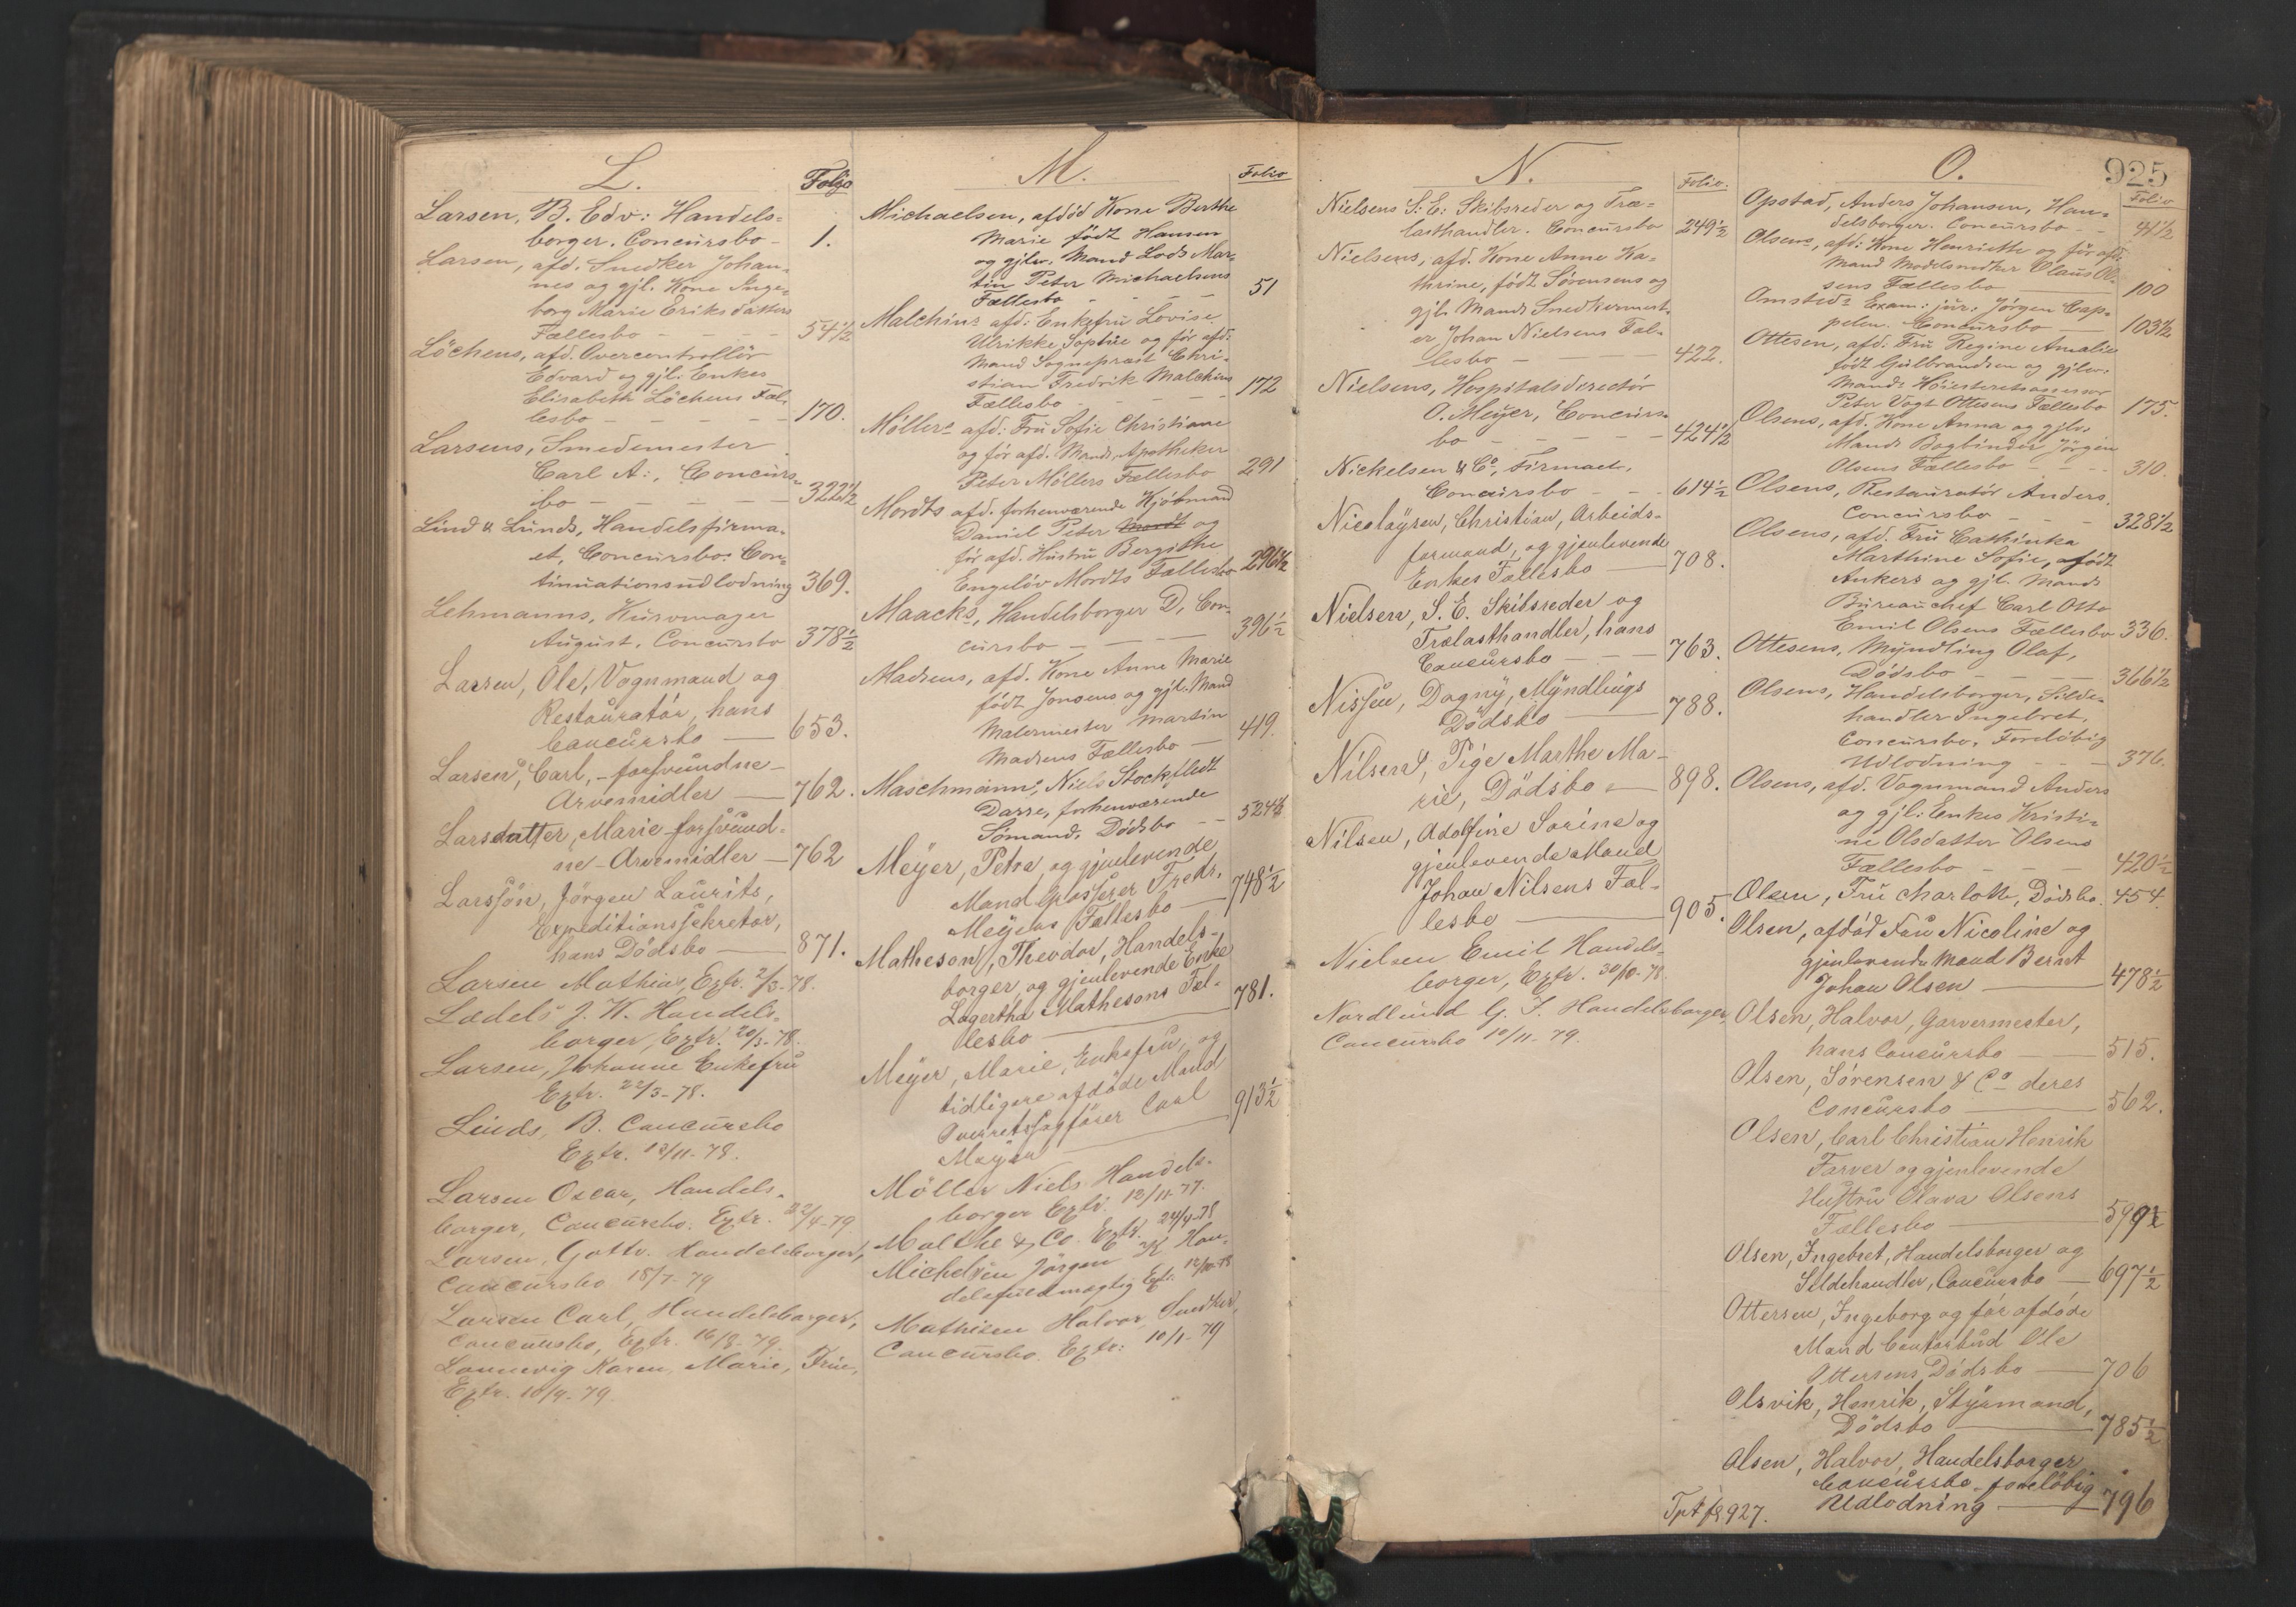 L.
Folio
Larsen, B. Edv: Handels=
borger. Concursbo - 1.
Larsen, afd. Snedker Johan-
nes og gjl. Kone Inge-
borg Marie Eriksdatters
Fællesbo - - - - 54 1/2
Löchens, afd. Overcontrollör
Edvard og gjl. Enkes
Elisabeth Löchens Fæl-
lesbo - - - - - 170.
Larsens, Smedemester
Carl A:, Concurs-
bo - - - - - 322 1/2
Lind & Lunds, Handelsfirma-
et, Concursbo: Con-
tinuationsudlodning 369.
Lehmanns, Kurvmager
August, Concursbo 378 1/2
Larsen, Ole, Vognmand og
Restauratör, hans
Concursbo — 653.
Larsen, Carl, - forsvundne -
Arvemidler — 762.
Larsdatter, Marie forsvund-
ne - Arvemidler — 762
Larssön, Jörgen Laurits,
Expeditionssekretær,
hans Dödsbo — 871.
Larsen Mathias, Extr. 2/3-78.
Ladels J. W. Handels-
borger, Extr. 20/3-78.
Larsen, Johanne Enkefru
Extr. 22/3-78.
Linds, B. Concursbo
Extr. 13/11-78.
Larsen Oscar, Handels-
borger, Concursbo. Extr. 22/4-79
Larsen, Gottr. Handelsborger,
Concursbo 18/7-79
Larsen Carl, Handelsborger,
Concursbo, Extr. 16/8-79.
Lonnevig Karen, Marie, Frue,
Extr. 10/9-79
M.
Folio
Michaelsen, afdöd Kone Berthe
Marie födt Hansen
og gjlv. Mand Lods Mar-
tin Peter Michaelsens
Fællesbo - - - - 51
Malchins afd: Enkefru Lovise
Ulrikke Sophie og för afd:
Mand Sognepræst Chri-
stian Fredrik Malchins
Fællesbo - - - - - 172
Möllers afd: Fru Sofie Christiane
og för afd. Mands, Apotheker
Peter Möllers Fællesbo 291
Mordts afd. forhenværende Kjöbmand
Daniel Peter Mordt og
för afd. Hustru Bergithe
Engelöv Mordts Fællesbo 296 1/2
Maacks, Handelsborger D, Con-
cursbo - - - - 396 1/2
Madsens, afd. Kone Anne Marie
födt Jensens og gjl. Mand
Malermester Martin
Madsens Fællesbo — 419.
Maschmanns, Niels Stockfledt
Darre, forhenværende
Sömands Dödsbo - - 524 1/2
Meyer, Petra, og gjenlevende
Mand Grosserer Fredr.
Meyers Fællesbo — 748 1/2
Matheson, Theodor, Handels-
borger og gjenlevende Enke
Lagertha Mathesons Fæl-
lesbo — 781.
Meyer, Marie, Enkefru, og
tidligere afdöde Mand
Overretssagförer Carl
Meyer — 913 1/2
Möller Niels Handels-
borger Extr. 12/11-77.
Malthe & Co. Extr. 24/4-78
Michelsen Jörgen K Han-
delsfuldmægtig Extr. 12/10-78
Mathisen Halvor, Snedker,
Concursbo. Extr: 10/1-79
N.
Folio.
Nielsens S: E: Skibsreder og Træ-
lasthandler. Concursbo 249 1/2
Nielsens, afd. Kone Anne Ka-
thrine, födt Sörensens og
gjl. Mands Snedkermest-
er Johan Nielsens Fæl-
lesbo - - - - 422.
Nielsens, Hospitalsdirectör
O. Meyer, Concurs-
bo - - - - - 424 1/2
Nickelsen & Co, Firmaet,
Concursbo - - - 614 1/2
Nicolaysen, Christian, Arbeids-
formand, og gjenlevende
Enkes Fællesbo — 708.
Nielsen, S. E. Skibsreder og
Trælasthandler, hans
Concursbo - - - 763.
Nissen, Dagny, Myndlings
Dödsbo — 788.
Nilsen, Pige Marthe Ma-
rie, Dödsbo — 898.
Nilsen, Adolfine Sorine og
gjenlevende Mand
Johan Nilsens Fæl-
lesbo — 905.
Nielsen Emil Handels-
borger, Extr. 30/10-78.
Nordlund G. F. Handelsborger,
Concursbo 10/11-79.
Tpt fs 927.
O.
925
Folio
Opstad, Anders Johansen, Han-
delsborger. Concursbo - - 41 1/2
Olsens, afd: Kone Henriette og för afd.
Mand Modelsnedker Claus Ol-
sens Fællesbo — 100
Omsteds Exam: jur. Jörgen Cap-
pelen. Concursbo — 103 1/2
Ottesen, afd. Fru Regine Amalie
födt Gulbrandsen og gjlev.
Mands Höiesteretsassessor
Peter Vogt Ottesens Fællesbo 175.
Olsens, afd. Kone Anna og gjlv.
Mands Bogbinder Jörgen
Olsens Fællesbo - - - 310.
Olsens, Restauratör Anders.
Concursbo - - - 328 1/2
Olsens, afd. Fru Cathinka
Marthine Sofie, født
Ankers og gjl. Mands
Bureauchef Carl Otto
Emil Olsens Fællesbo 336.
Ottesens, Myndling Olaf,
Dödsbo - - - - 366 1/2
Olsens, Handelsborger, Silde-
handler Ingebret,
Concursbo. Foreløbig
Udlodning - - - 376.
Olsens, afd. Vognmand Anders
og gjl: Enkes Kristi-
ne Olsdatter Olsens
Fællesbo - - - 420 1/2
Olsen, Fru Charlotte, Dödsbo. 454.
Olsen, afdöd Fru Nicoline og
gjenlevende Mand Bernt
Johan Olsen — 478 1/2
Olsen, Halvor, Garvermester,
hans Concursbo — 515.
Olsen, Sörensen & Co deres
Concursbo — 562.
Olsen, Carl Christian Henrik
Farver og gjenlevende
Hustru Olava Olsens
Fællesbo — 599 1/2
Olsen, Ingebret, Handelsborger og
Sildehandler, Concursbo — 697 1/2
Ottersen, Ingeborg og för afdöde
Mand Contorbud Ole
Ottersens Dödsbo — 706
Olsvik, Henrik, Styrmand,
Dödsbo — 785 1/2
Olsen, Halvor, Handelsborger
Concursbo - forelöbig
Udlodning — 796